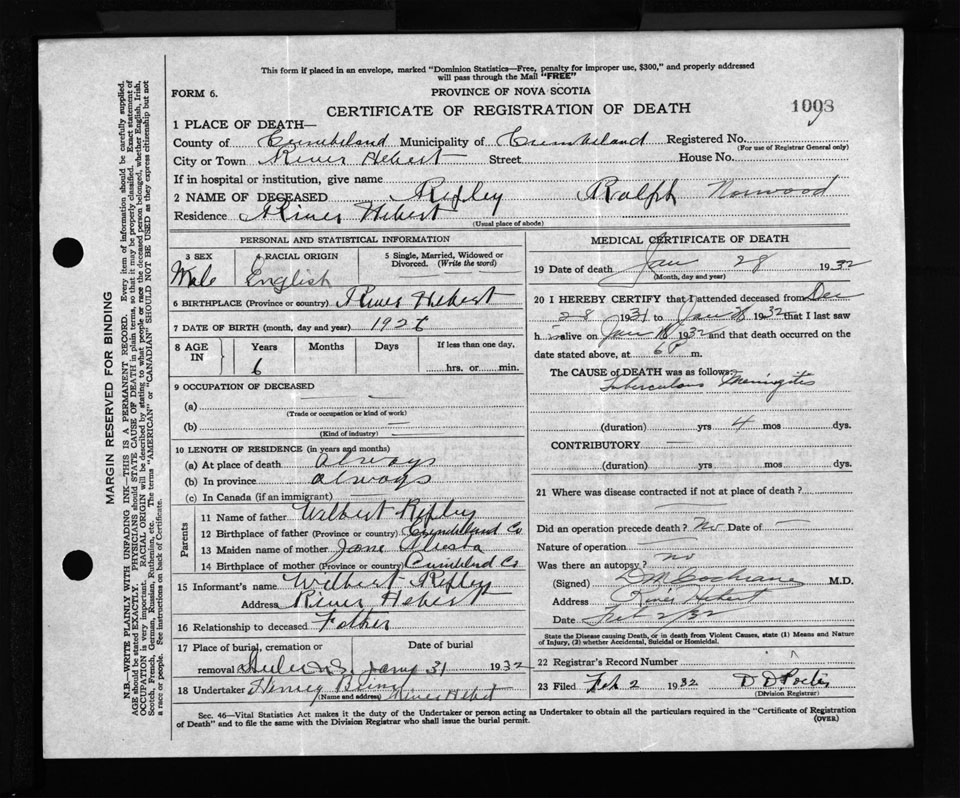 This form if placed in an envelope, marked "Dominion Statistics—Free, penalty for improper use, $300," and properly addressed
will pass through the Mail "FREE"
FORM 6.
PROVINCE OF NOVA SCOTIA
CERTIFICATE OF REGISTRATION OF DEATH
1 PLACE OF DEATH—
County of Cumberland Municipality of Cumberland Registered No.
(For use of Registrar General only)
City or Town River Hebert Street House No.
If in hospital or institution, give name
2 NAME OF DECEASED Ripley Ralph Norwood
Residence River Hebert
(Usual place of abode)
PERSONAL AND STATISTICAL INFORMATION
3 SEX 4 RACIAL ORIGIN 5 Single, Married, Widowed or Divorced. (Write the word)
Male English
6 BIRTHPLACE (Province or country) River Hebert
7 DATE OF BIRTH (month, day and year) 1926
8 AGE IN Years Months Days If less than one day,
6 hrs. or min.
9 OCCUPATION OF DECEASED
(a) —
(Trade or occupation or kind of work)
(b) —
(Kind of industry)
10 LENGTH OF RESIDENCE (in years and months)
(a) At place of death always
(b) In province always
(c) In Canada (if an immigrant) —
Parents
11 Name of father Wilbert Ripley
12 Birthplace of father (Province or country) Cumbeland Co
13 Maiden name of mother Jane
14 Birthplace of mother (Province or country) Cumblnd Co
15 Informant's name Wilbert Ripley
Address River Hebert
16 Relationship to deceased Father
17 Place of burial, cremation or removal Date of burial
31 1932
18 Undertaker Henry River Hebert
(Name and address)
MEDICAL CERTIFICATE OF DEATH
19 Date of death Jan 28 1932
(Month, day and year)
20 I HEREBY CERTIFY that I attended deceased from Dec
28 1931 to Jan 1932 that I last saw
h is alive on Jan 1932 and that death occurred on
date stated above, at 6 P m.
The CAUSE OF DEATH was as follows:
Tuberculous Meningitis
(duration) yrs 4 mos dys.
CONTRIBUTORY —
(duration) yrs. mos. dys.
21 Where was disease contracted if not at place of death?
—
Did an operation precede death? No Date of —
Nature of operation —
Was there an autopsy? no
(Signed) D M Cochrane M.D.
Address River Hebert
Date Feb 2/32
State the Disease causing Death, or in death from Violent Causes, state (1) Means and Nature
of Injury, (2) whether Accidental, Suicidal or Homicidal.
22 Registrar's Record Number
23 Filed Feb 2 1932 D D
(Division Registrar)
Sec. 46—Vital Statistics Act makes it the duty of the Undertaker or person acting as Undertaker to obtain all the particulars required in the "Certificate of Registration
of Death" and to file the same with the Division Registrar who shall issue the burial permit.
(OVER)
MARGIN RESERVED FOR BINDING
N.B.—WRITE PLAINLY WITH UNFADING INK—THIS IS A PERMANENT RECORD. Every item of information should be carefully supplied.
AGE should be stated EXACTLY. PHYSICIANS should STATE CAUSE OF DEATH in plain terms, so that it may be properly classified. Exact statement of
OCCUPATION is very important. RACIAL ORIGIN will be described by stating to what people or race the deceased person belonged, whether English, Irish,
Scotch, French, German, Russian, Ruthenian, etc. The terms "AMERICAN" or "CANADIAN" SHOULD NOT BE USED as they express citizenship but not
a race or people. See instructions on back of Certificate.